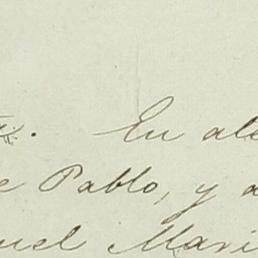 En ale
e Pablo, y a
uel Mari